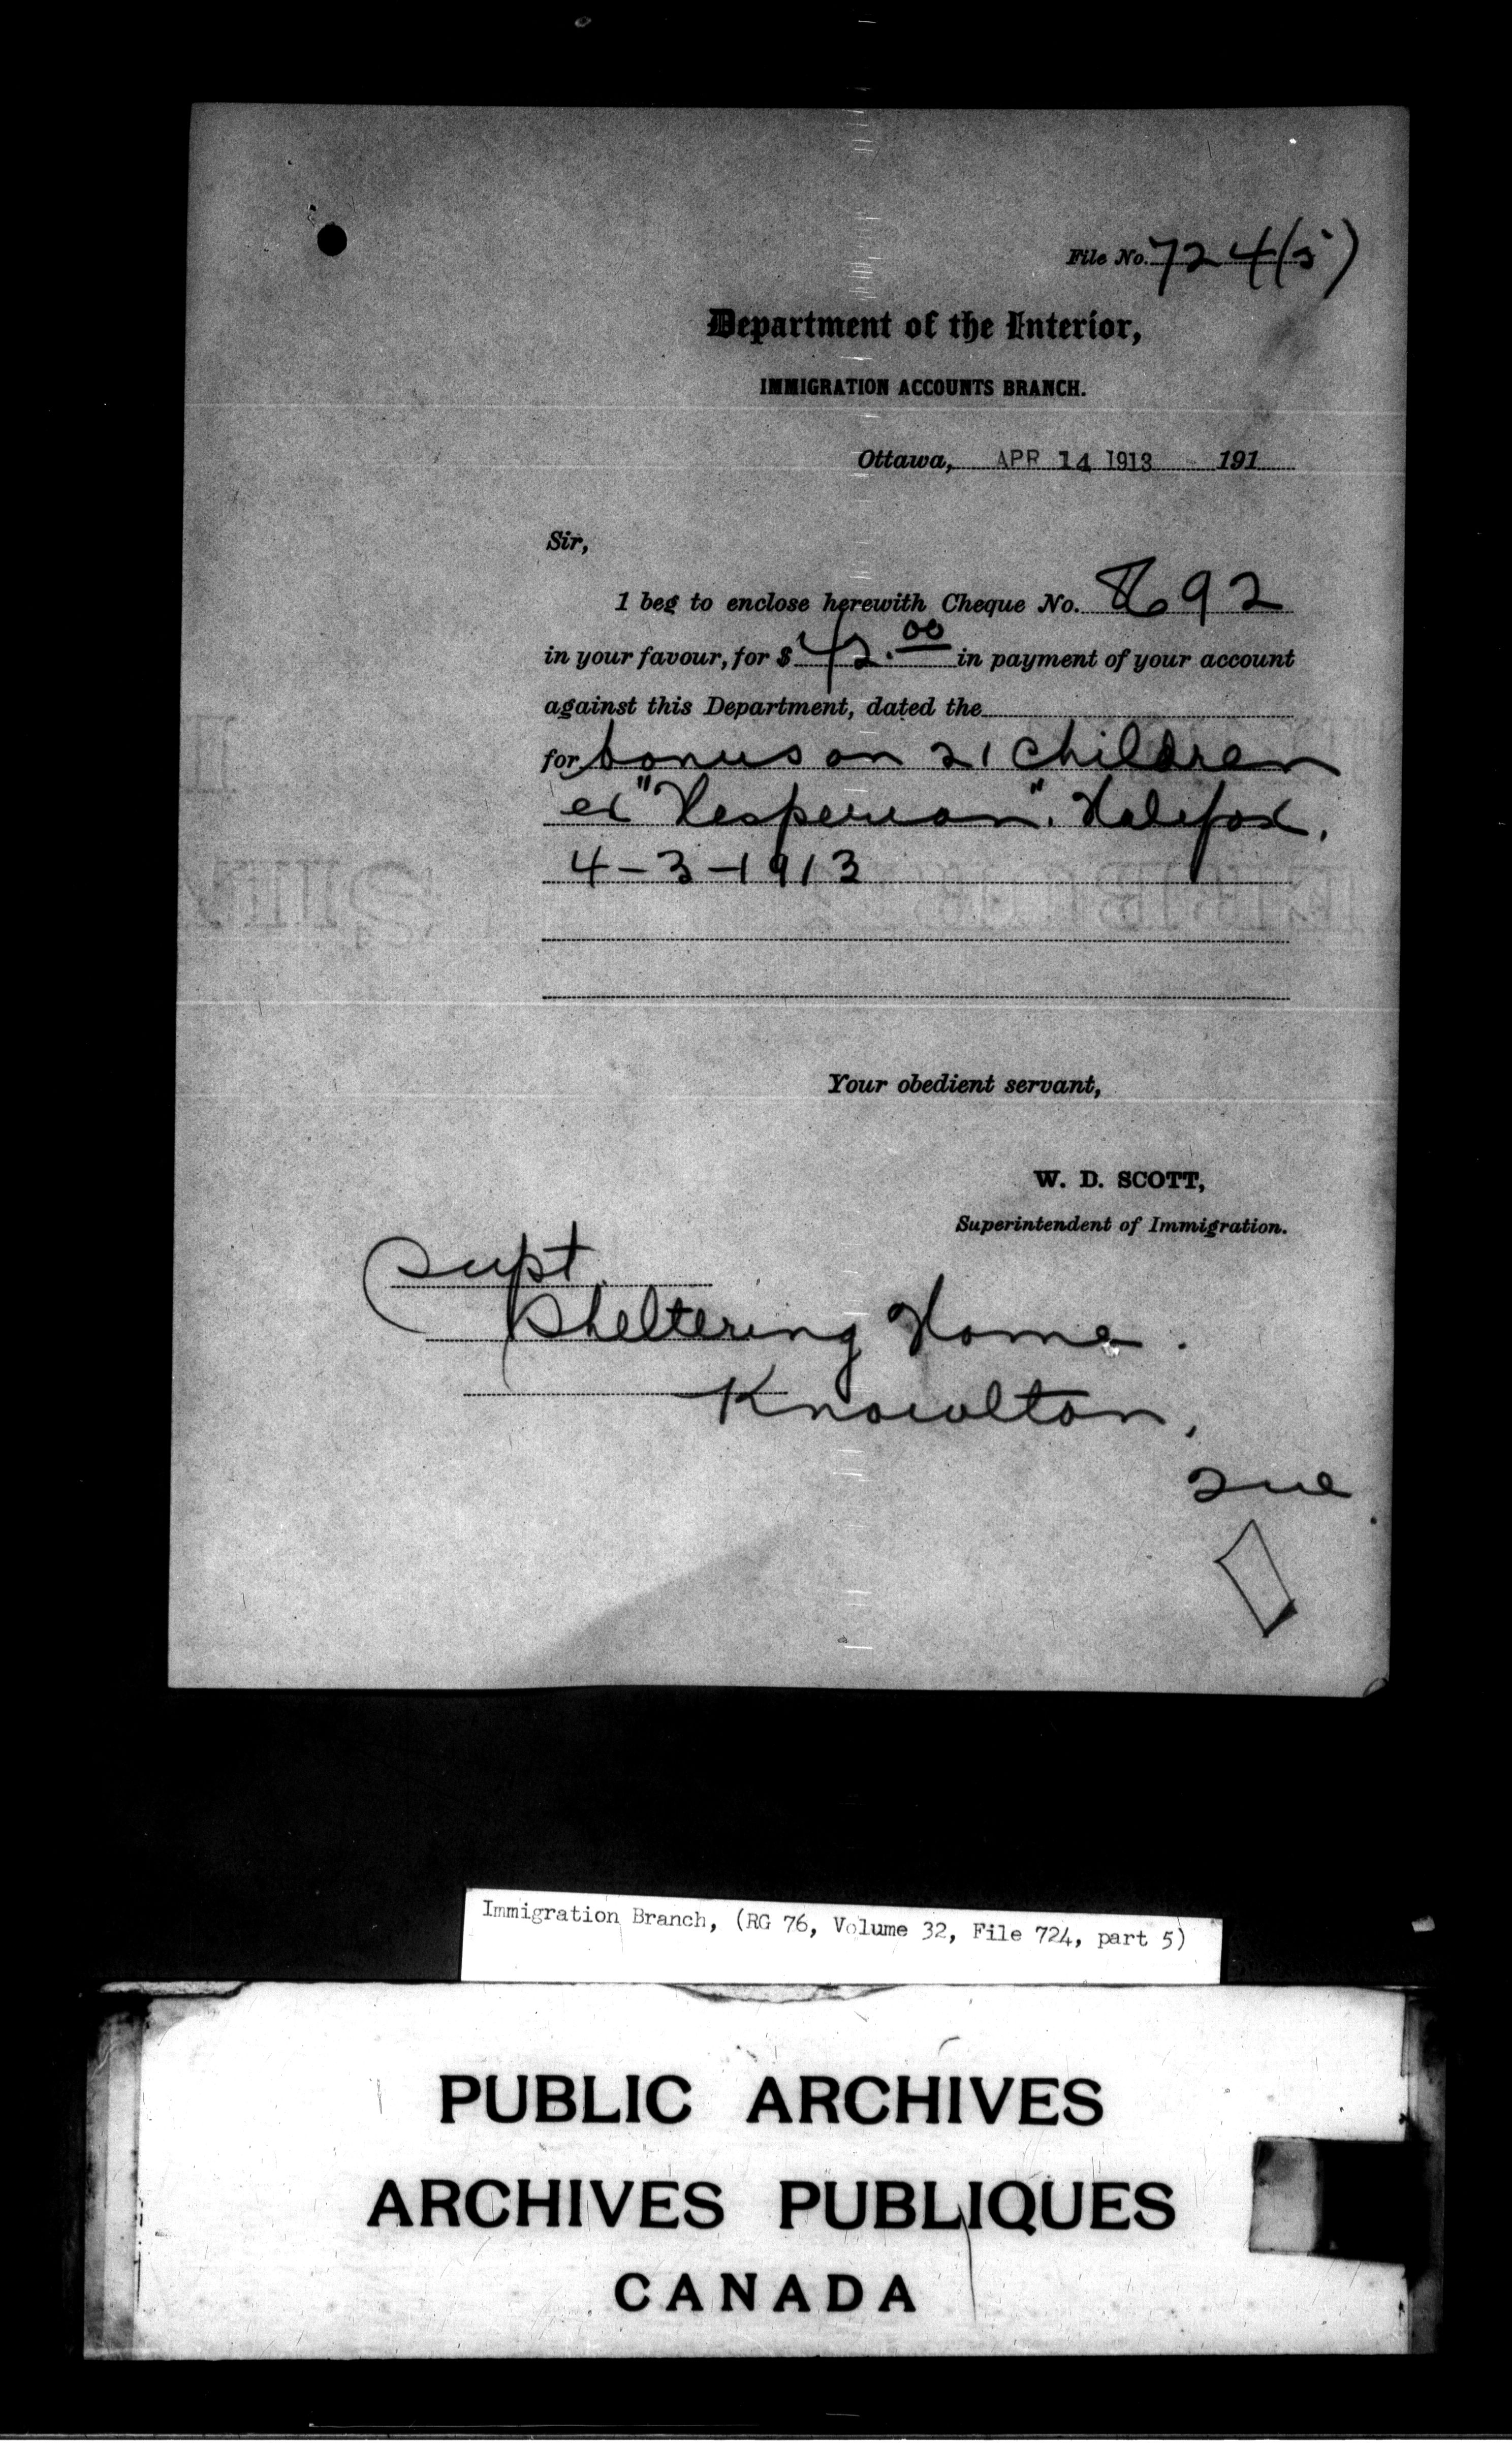 File No. 724(5)
Department of the Interior,
IMMIGRATION ACCOUNTS BRANCH.
Ottawa, APR 14 1913 191
Sir,
I beg to enclose herewith Cheque No. 8692
in your favour, for $ 42.00 in payment of your account
against this Department, dated the
for bonus on 21 children
ex "Hesperian". Halifax,
4-3-1913
Your obedient servant,
W. D. SCOTT,
Superintendent of Immigration.
Supt.
Sheltering Home.
Knowlton,
Que.
Immigration Branch, (RG 76, Volume 32, File 724, part 5)
PUBLIC ARCHIVES
ARCHIVES PUBLIQUES
CANADA